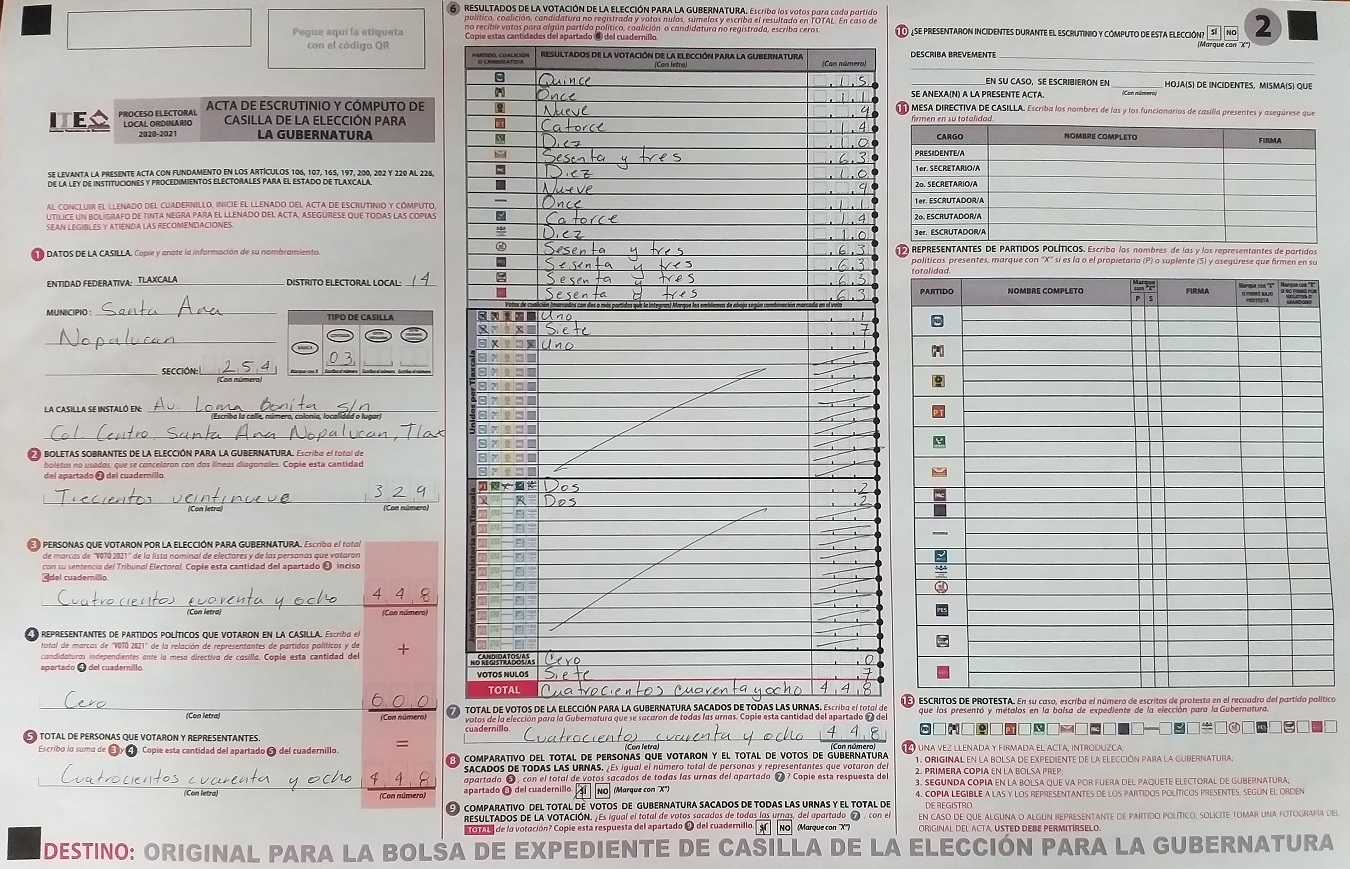 Pegue aquí la etiqueta
con el código QR
ITE
PROCESO ELECTORAL
LOCAL ORDINARIO
2020-2021
ACTA DE ESCRUTINIO Y CÓMPUTO DE
CASILLA DE LA ELECCIÓN PARA
LA GUBERNATURA
SE LEVANTA LA PRESENTE ACTA CON FUNDAMENTO EN LOS ARTÍCULOS 106, 107, 165, 197, 200, 202 Y 220 AL 226,
DE LA LEY DE INSTITUCIONES Y PROCEDIMIENTOS ELECTORALES PARA EL ESTADO DE TLAXCALA.
AL CONCLUIR EL LLENADO DEL CUADERNILLO, INICIE EL LLENADO DEL ACTA DE ESCRUTINIO Y CÓMPUTO,
UTILICE UN BOLÍGRAFO DE TINTA NEGRA PARA EL LLENADO DEL ACTA, ASEGÚRESE QUE TODAS LAS COPIAS
SEAN LEGIBLES Y ATIENDA LAS RECOMENDACIONES.
1 DATOS DE LA CASILLA. Copie y anote la información de su nombramiento.
ENTIDAD FEDERATIVA: TLAXCALA DISTRITO ELECTORAL LOCAL: 14
MUNICIPIO: Santa Ana
Nopalucan
TIPO DE CASILLA
03
SECCIÓN: 254
(Con número)
LA CASILLA SE INSTALÓ EN: Av. Loma Bonita s/n
(Escriba la calle, número, colonia, localidad o lugar)
Col. Centro, Santa Ana Nopalucan, Tlax
2 BOLETAS SOBRANTES DE LA ELECCIÓN PARA LA GUBERNATURA. Escriba el total de
boletas no usadas, que se cancelaron con dos líneas diagonales. Copie esta cantidad
del apartado 2 del cuadernillo.
Trecientos veintinueve 329
(Con letra) (Con número)
3 PERSONAS QUE VOTARON POR LA ELECCIÓN PARA GUBERNATURA. Escriba el total
de marcas de "VOTÓ 2021" de la lista nominal de electores y de las personas que votaron
con su sentencia del Tribunal Electoral. Copie esta cantidad del apartado 3 inciso
C del cuadernillo.
Cuatrocientos cuarenta y ocho 448
(Con letra) (Con número)
4 REPRESENTANTES DE PARTIDOS POLÍTICOS QUE VOTARON EN LA CASILLA. Escriba el
total de marcas de "VOTÓ 2021" de la relación de representantes de partidos políticos y de
candidaturas independientes ante la mesa directiva de casilla. Copie esta cantidad del
apartado 4 del cuadernillo.
+
Cero 000
(Con letra) (Con número)
5 TOTAL DE PERSONAS QUE VOTARON Y REPRESENTANTES.
Escriba la suma de 3 y 4 Copie esta cantidad del apartado 5 del cuadernillo.
=
Cuatrocientos cuarenta y ocho 448
(Con letra) (Con número)
6 RESULTADOS DE LA VOTACIÓN DE LA ELECCIÓN PARA LA GUBERNATURA. Escriba los votos para cada partido
político, coalición, candidatura no registrada y votos nulos, súmelos y escriba el resultado en TOTAL. En caso de
no recibir votos para algún partido político, coalición o candidatura no registrada, escriba ceros.
Copie estas cantidades del apartado 6 del cuadernillo.
PARTIDO, COALICIÓN O CANDIDATO/A RESULTADOS DE LA VOTACIÓN DE LA ELECCIÓN PARA LA GUBERNATURA
(Con letra) (Con número)
Quince 15
Once 11
Nueve 9
Catorce 14
Diez 10
Sesenta y tres 63
Diez 10
Nueve 9
Once 11
Catorce 14
Diez 10
Sesenta y tres 63
Sesenta y tres 63
Sesenta y tres 63
Sesenta y tres 63
Votos de coalición (marcados con dos o más partidos que la integran) Marque los emblemas de abajo según combinación marcada en el voto
Unidos por Tlaxcala
Uno 1
Siete 7
Uno 1
Juntos haremos historia en Tlaxcala
Dos 2
Dos 2
CANDIDATOS/AS
NO REGISTRADOS/AS Cero 0
VOTOS NULOS Siete 7
TOTAL Cuatrocientos cuarenta y ocho 448
7 TOTAL DE VOTOS DE LA ELECCIÓN PARA LA GUBERNATURA SACADOS DE TODAS LAS URNAS. Escriba el total de
votos de la elección para la Gubernatura que se sacaron de todas las urnas. Copie esta cantidad del apartado 7 del
cuadernillo.
Cuatrocientos cuarenta y ocho 448
(Con letra) (Con número)
8 COMPARATIVO DEL TOTAL DE PERSONAS QUE VOTARON Y EL TOTAL DE VOTOS DE GUBERNATURA
SACADOS DE TODAS LAS URNAS. ¿Es igual el número total de personas y representantes que votaron del
apartado 5, con el total de votos sacados de todas las urnas del apartado 7? Copie esta respuesta del
apartado 8 del cuadernillo. SÍ NO (Marque con "X")
9 COMPARATIVO DEL TOTAL DE VOTOS DE GUBERNATURA SACADOS DE TODAS LAS URNAS Y EL TOTAL DE
RESULTADOS DE LA VOTACIÓN. ¿Es igual el total de votos sacados de todas las urnas, del apartado 7, con el
TOTAL de la votación? Copie esta respuesta del apartado 9 del cuadernillo. SÍ NO (Marque con "X")
2
10 ¿SE PRESENTARON INCIDENTES DURANTE EL ESCRUTINIO Y CÓMPUTO DE ESTA ELECCIÓN? SÍ NO
(Marque con "X")
DESCRIBA BREVEMENTE
EN SU CASO, SE ESCRIBIERON EN HOJA(S) DE INCIDENTES, MISMA(S) QUE
(Con número)
SE ANEXA(N) A LA PRESENTE ACTA.
11 MESA DIRECTIVA DE CASILLA. Escriba los nombres de las y los funcionarios de casilla presentes y asegúrese que
firmen en su totalidad.
CARGO NOMBRE COMPLETO FIRMA
PRESIDENTE/A
1er. SECRETARIO/A
2o. SECRETARIO/A
1er. ESCRUTADOR/A
2o. ESCRUTADOR/A
3er. ESCRUTADOR/A
12 REPRESENTANTES DE PARTIDOS POLÍTICOS. Escriba los nombres de las y los representantes de partidos
políticos presentes, marque con "X" si es la o el propietario (P) o suplente (S) y asegúrese que firmen en su
totalidad.
PARTIDO NOMBRE COMPLETO Marque con "X" P S FIRMA Marque con "X" SI FIRMÓ BAJO PROTESTA Marque con "X" SI NO FIRMÓ POR NEGATIVA O ABANDONO
PT
PAC
PES
13 ESCRITOS DE PROTESTA. En su caso, escriba el número de escritos de protesta en el recuadro del partido político
que los presentó y métalos en la bolsa de expediente de la elección para la Gubernatura.
14 UNA VEZ LLENADA Y FIRMADA EL ACTA, INTRODUZCA:
1. ORIGINAL EN LA BOLSA DE EXPEDIENTE DE LA ELECCIÓN PARA LA GUBERNATURA;
2. PRIMERA COPIA EN LA BOLSA PREP;
3. SEGUNDA COPIA EN LA BOLSA QUE VA POR FUERA DEL PAQUETE ELECTORAL DE GUBERNATURA;
4. COPIA LEGIBLE A LAS Y LOS REPRESENTANTES DE LOS PARTIDOS PRESENTES, SEGÚN EL ORDEN
DE REGISTRO.
EN CASO DE QUE ALGUNA O ALGÚN REPRESENTANTE DE PARTIDO POLÍTICO, SOLICITE TOMAR UNA FOTOGRAFÍA DEL
ORIGINAL DEL ACTA, USTED DEBE PERMITÍRSELO.
DESTINO: ORIGINAL PARA LA BOLSA DE EXPEDIENTE DE CASILLA DE LA ELECCIÓN PARA LA GUBERNATURA